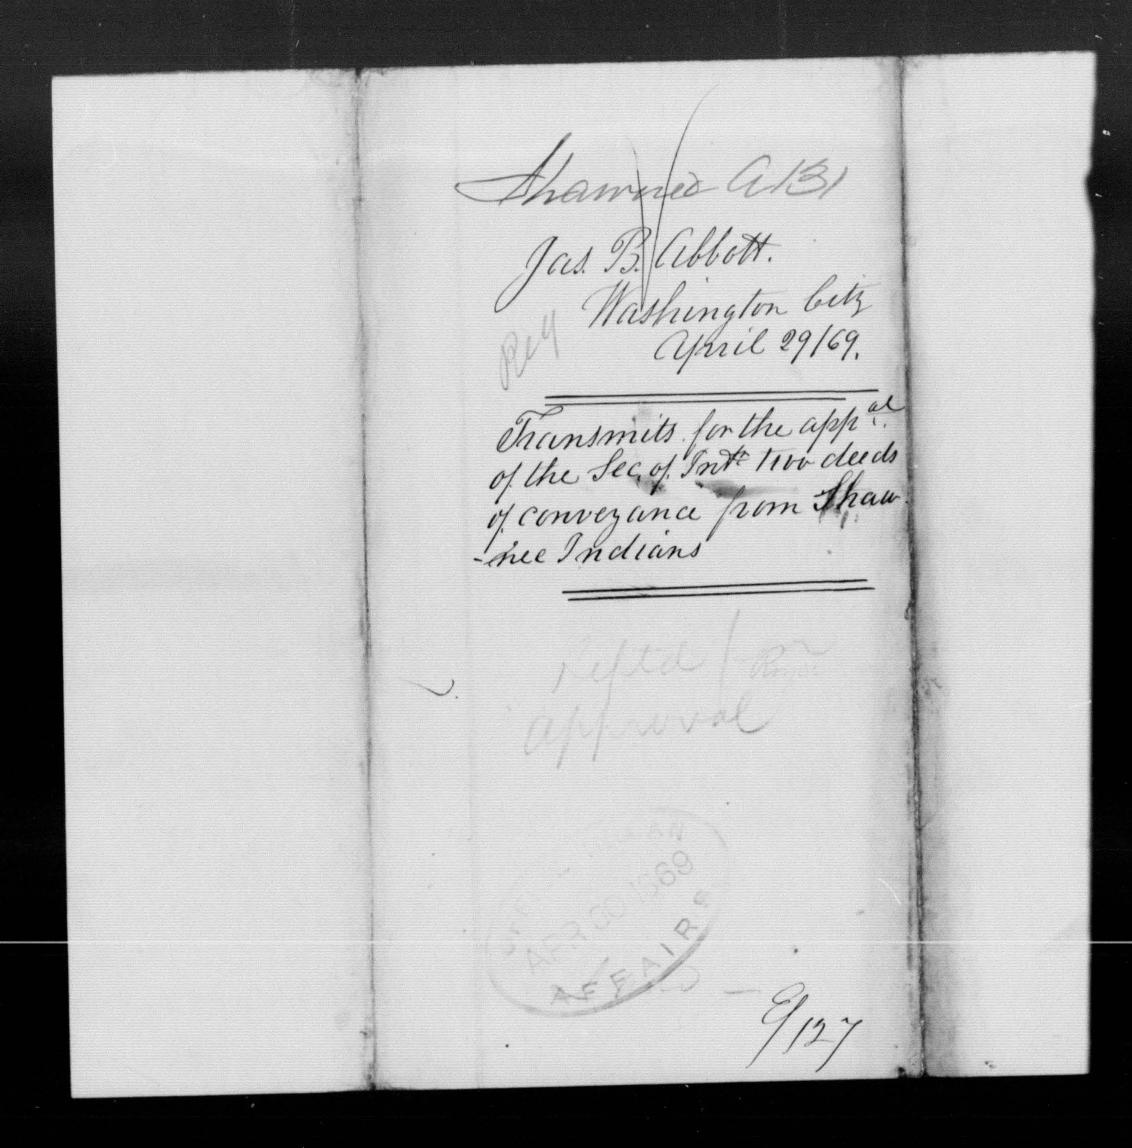 Shawnee A 131
Jas. B. Abbott.
Washington City
April 29/69.
Transmits for the app.al
of the Sec. of Intr two deeds
of conveyance from Shaw-
-nee Indians
approval
APR 30 1869
AFFAIRS
127